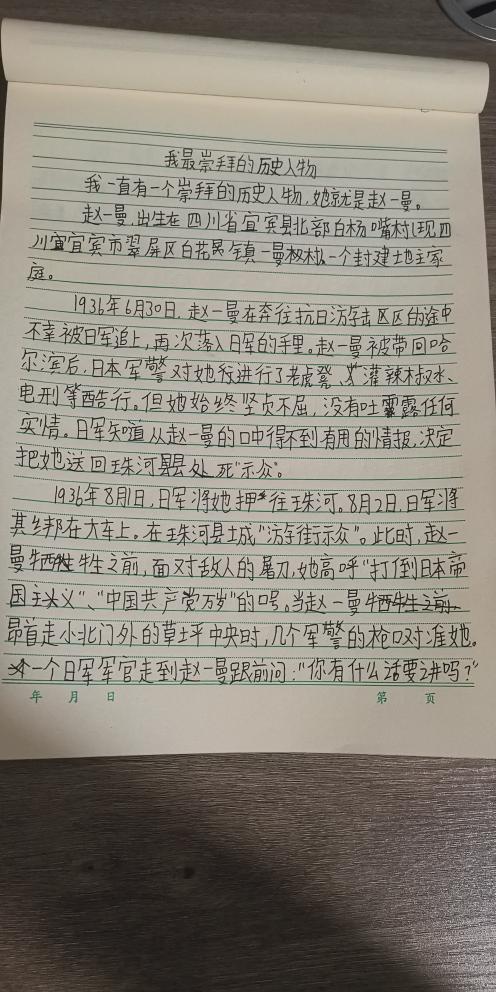 我最崇拜的历史人物
我一直有一个崇拜的历史人物,她就是赵一曼。
赵一曼,出生在四川省宜宾县北部白杨嘴村(现四
川宜宾市翠屏区白花镇一曼村)一个封建地主家
庭。
1936年6月30日,赵一曼在奔往抗日游击区的途中
不幸被日军追上,再次落入日军的手里。赵一曼被带回哈
尔滨后,日本军警对她行进行了老虎凳、灌辣椒水、
电刑等酷行。但她始终坚贞不屈,没有吐露任何
实情。日军知道从赵一曼的口中得不到有用的情报,决定
把她送回珠河县处死"示众"。
1936年8月1日,日军将她押往珠河。8月2日,日军将
其绑在大车上。在珠河县城"游街示众"。此时,赵一
曼牺牲之前,面对敌人的屠刀,她高呼"打倒日本帝
国主义"、"中国共产党万岁"的口号。当赵一曼
昂首走小北门外的草坪中央时,几个军警的枪口对准她。
一个日军军官走到赵一曼跟前问:"你有什么话要讲吗?"
年 月 日 第 页